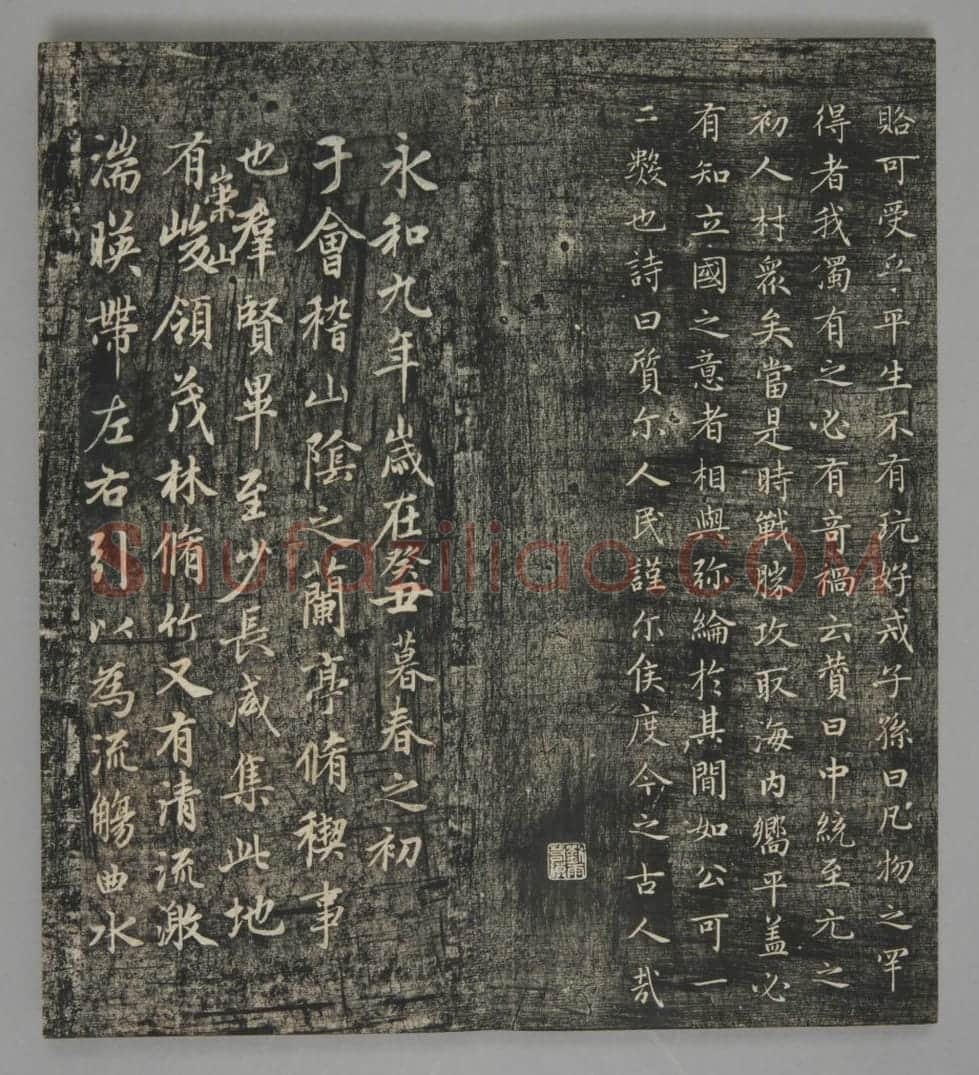 貽可受五平生不有玩好戒子孫曰凡物之罕
得者我獨有之必有奇禍云贊曰中統至元之
初人材衆矣當是時戰勝攻取海内嚮平蓋必
有知立國之意者相與弥綸於其間如公可一
二數也詩曰質尔人民謹尔侯度今之古人哉
永和九年歲在癸丑暮春之初
于會稽山陰之蘭亭脩禊事
也羣賢畢至少長咸集此地
有崇山峻領茂林脩竹又有清流激
湍暎帶左右引以為流觴曲水
Shufaziliao.COM